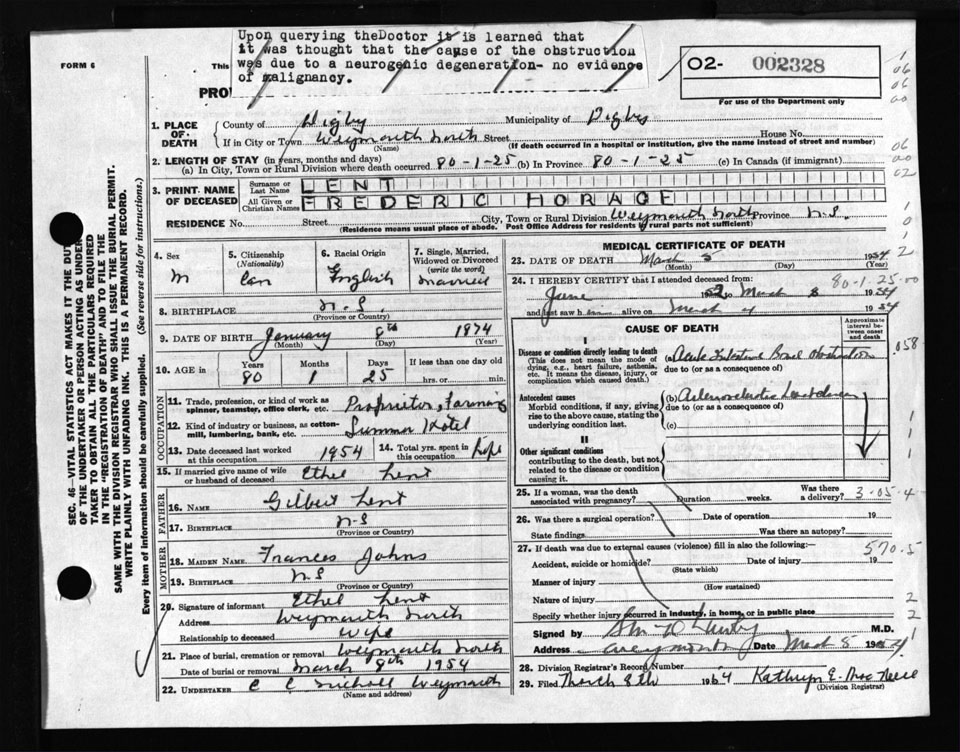 Upon querying theDoctor it is learned that
it was thought that the cause of the obstruction
was due to a neurogenic degeneration- no evidence
of malignancy.
FORM 6
This
PRO
O2- 002328
For use of the Department only
1. PLACE OF DEATH
County of Digby Municipality of Digby
If in City or Town Weymouth North Street House No.
(Name) (If death occurred in a hospital or institution, give the name instead of street and number)
2. LENGTH OF STAY (in years, months and days)
(a) In City, Town or Rural Division where death occurred 80-1-25 (b) In Province 80-1-25 (c) In Canada (if immigrant)
3. PRINT NAME OF DECEASED
Surname or Last Name LENT
All Given or Christian Names FREDERIC HORACE
RESIDENCE No. Street City, Town or Rural Division Weymouth North Province N.S.
(Residence means usual place of abode. Post Office Address for residents of rural parts not sufficient)
4. Sex M
5. Citizenship (Nationality) Can
6. Racial Origin English
7. Single, Married, Widowed or Divorced (write the word) Married
8. BIRTHPLACE N.S.
(Province or Country)
9. DATE OF BIRTH January 8th 1874
(Month) (Day) (Year)
10. AGE in Years 80 Months 1 Days 25 If less than one day old hrs. or min.
OCCUPATION
11. Trade, profession, or kind of work as spinner, teamster, office clerk, etc. Proprietor, Farming
12. Kind of industry or business, as cotton-mill, lumbering, bank, etc. Summer Hotel
13. Date deceased last worked at this occupation 1954
14. Total yrs. spent in this occupation life
15. If married give name of wife or husband of deceased Ethel Lent
FATHER
16. NAME Gilbert Lent
17. BIRTHPLACE N-S
(Province or Country)
MOTHER
18. MAIDEN NAME Frances Johns
19. BIRTHPLACE N S
(Province or Country)
20. Signature of informant Ethel Lent
Address Weymouth North
Relationship to deceased Wife
21. Place of burial, cremation or removal Weymouth North
Date of burial or removal March 8th 1954
22. UNDERTAKER C C Nicholl Weymouth
(Name and address)
MEDICAL CERTIFICATE OF DEATH
23. DATE OF DEATH March 5 1954
(Month) (Day) (Year)
24. I HEREBY CERTIFY that I attended deceased from: 80-1.25-00
June to March 1954
and last saw h alive on March 4 1954
CAUSE OF DEATH
Approximate interval between onset and death
I
Disease or condition directly leading to death
(This does not mean the mode of dying, e.g., heart failure, asthenia, etc. It means the disease, injury, or complication which caused death.)
(a) Acute Intestinal Bowel Obstruction
due to (or as a consequence of)
Antecedent causes
Morbid conditions, if any, giving rise to the above cause, stating the underlying condition last.
(b) Arteriosclerotic heart disease
due to (or as a consequence of)
(c)
II
Other significant conditions
contributing to the death, but not related to the disease or condition causing it.
25. If a woman, was the death associated with pregnancy? Duration weeks. Was there a delivery? 3-05-4
26. Was there a surgical operation? Date of operation 19
State findings Was there an autopsy?
27. If death was due to external causes (violence) fill in also the following: 570.5
Accident, suicide or homicide? Date of injury 19
(State which)
Manner of injury
(How sustained)
Nature of injury
Specify whether injury occurred in industry, in home, or in public place
Signed by M.D.
Address Weymouth Date March 8 1954
28. Division Registrar's Record Number
29. Filed March 8th 1954 Kathryn E. Mac Neill
(Division Registrar)
SEC. 46—VITAL STATISTICS ACT MAKES IT THE DUTY
OF THE UNDERTAKER OR PERSON ACTING AS UNDER-
TAKER TO OBTAIN ALL THE PARTICULARS REQUIRED
IN THE "REGISTRATION OF DEATH" AND TO FILE THE
SAME WITH THE DIVISION REGISTRAR WHO SHALL ISSUE THE BURIAL PERMIT.
WRITE PLAINLY WITH UNFADING INK. THIS IS A PERMANENT RECORD.
Every item of information should be carefully supplied. (See reverse side for instructions.)